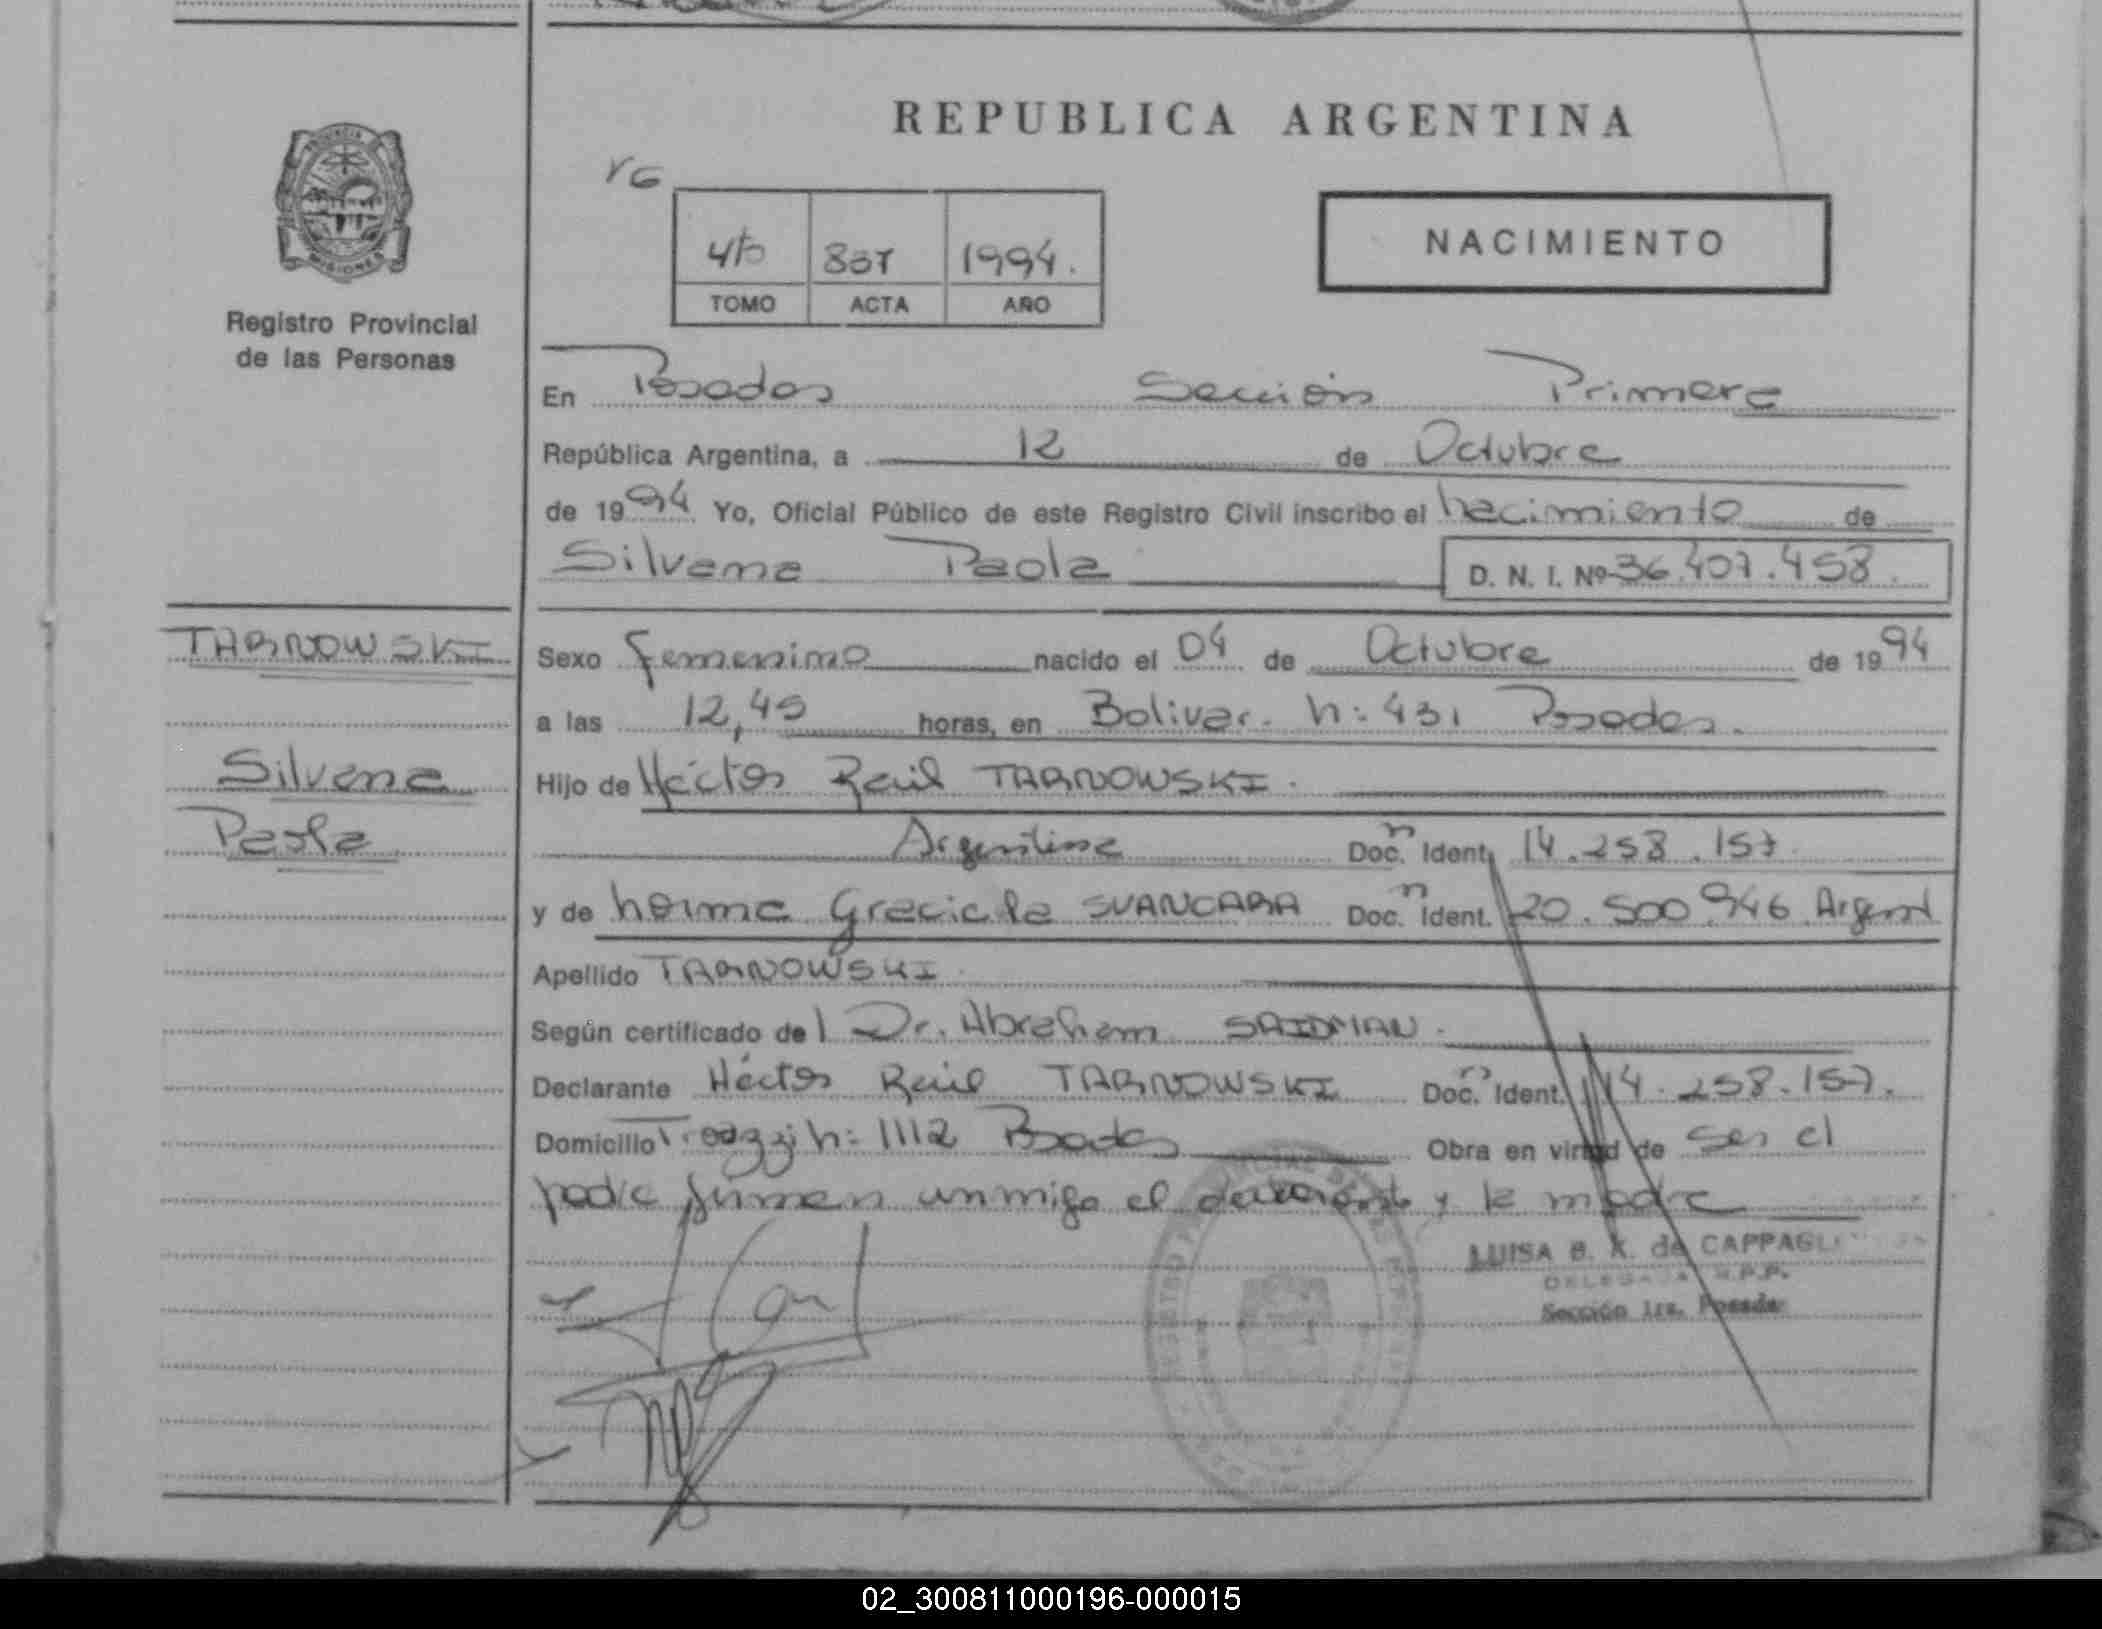 REPUBLICA ARGENTINA
PROVINCIA
MISIONES
Registro Provincial
de las Personas
837 1994.
TOMO ACTA AÑO
NACIMIENTO
En Posadas Sección Primera
República Argentina, a 12 de Octubre
de 1994 Yo, Oficial Público de este Registro Civil inscribo el nacimiento de
Silvana Paola D. N. I. Nº 36.407.458.
TARNOWSKI
Silvana
Paola
Sexo femenino nacido el 04 de Octubre de 1994
a las 12,45 horas, en Bolivar. n: 431 Posadas.
Hijo de Héctor Raúl TARNOWSKI.
Argentina Doc. Ident. 14.258.157
y de Norma Graciela SVANCARA Doc. Ident. 20.500.946 Argent
Apellido TARNOWSKI.
Según certificado de l Dr. Abraham SAIDMAN.
Declarante Héctor Raúl TARNOWSKI Doc. Ident. 14.258.157.
Domicilio n: 1112 Posadas Obra en virtud de ser el
padre firman conmigo el declarante y la madre
LUISA B. K. de
DELEGADA R.P.P.
Sección 1ra. Posadas
02_300811000196-000015